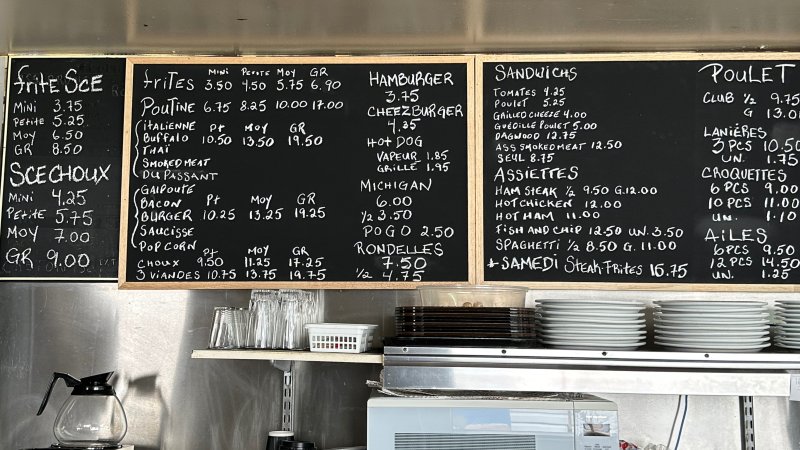 frite SCE
MINI 3.75
Petite 5.25
MOY 6.50
GR 8.50
SCE CHOUX
MINI 4.25
Petite 5.75
MOY 7.00
GR 9.00
MINI PETITE MOY GR
friTES 3.50 4.50 5.75 6.90
POUTINE 6.75 8.25 10.00 17.00
ITALIENNE Pt MOY GR
BUFFALO 10.50 13.50 19.50
THAI
SMOKED MEAT
DU PASSANT
GALPOUTE
BACON Pt MOY GR
BURGER 10.25 13.25 19.25
SAUCISSE
POPCORN Pt MOY GR
CHOUX 9.50 11.25 17.25
3 VIANDES 10.75 13.75 19.75
HAMBURGER
3.75
CHEEZBURGER
4.25
HOT DOG
VAPEUR 1.85
GRILLÉ 1.95
MICHIGAN
6.00
1/2 3.50
POGO 2.50
RONDELLES
7.50
1/2 4.75
SANDWICHS
TOMATES 4.25
POULET 5.25
GRILLED CHEEZE 4.00
GUÉDILLE POULET 5.00
DAGWOOD 12.75
ASS SMOKED MEAT 12.50
SEUL 8.75
ASSIETTES
HAM STEAK 1/2 9.50 G.12.00
HOT CHICKEN 12.00
HOT HAM 11.00
FISH AND CHIP 12.50 UN. 3.50
SPAGHETTI 1/2 8.50 G. 11.00
SAMEDI Steak Frites 15.75
POULET
CLUB 1/2 9.75
G 13.0
LANIÈRES
3 PCS 10.50
UN. 1.75
CROQUETTES
6 PCS 9.00
10 PCS 11.00
UN. 1.10
AILES
6 PCS 9.50
12 PCS 14.50
UN. 1.25